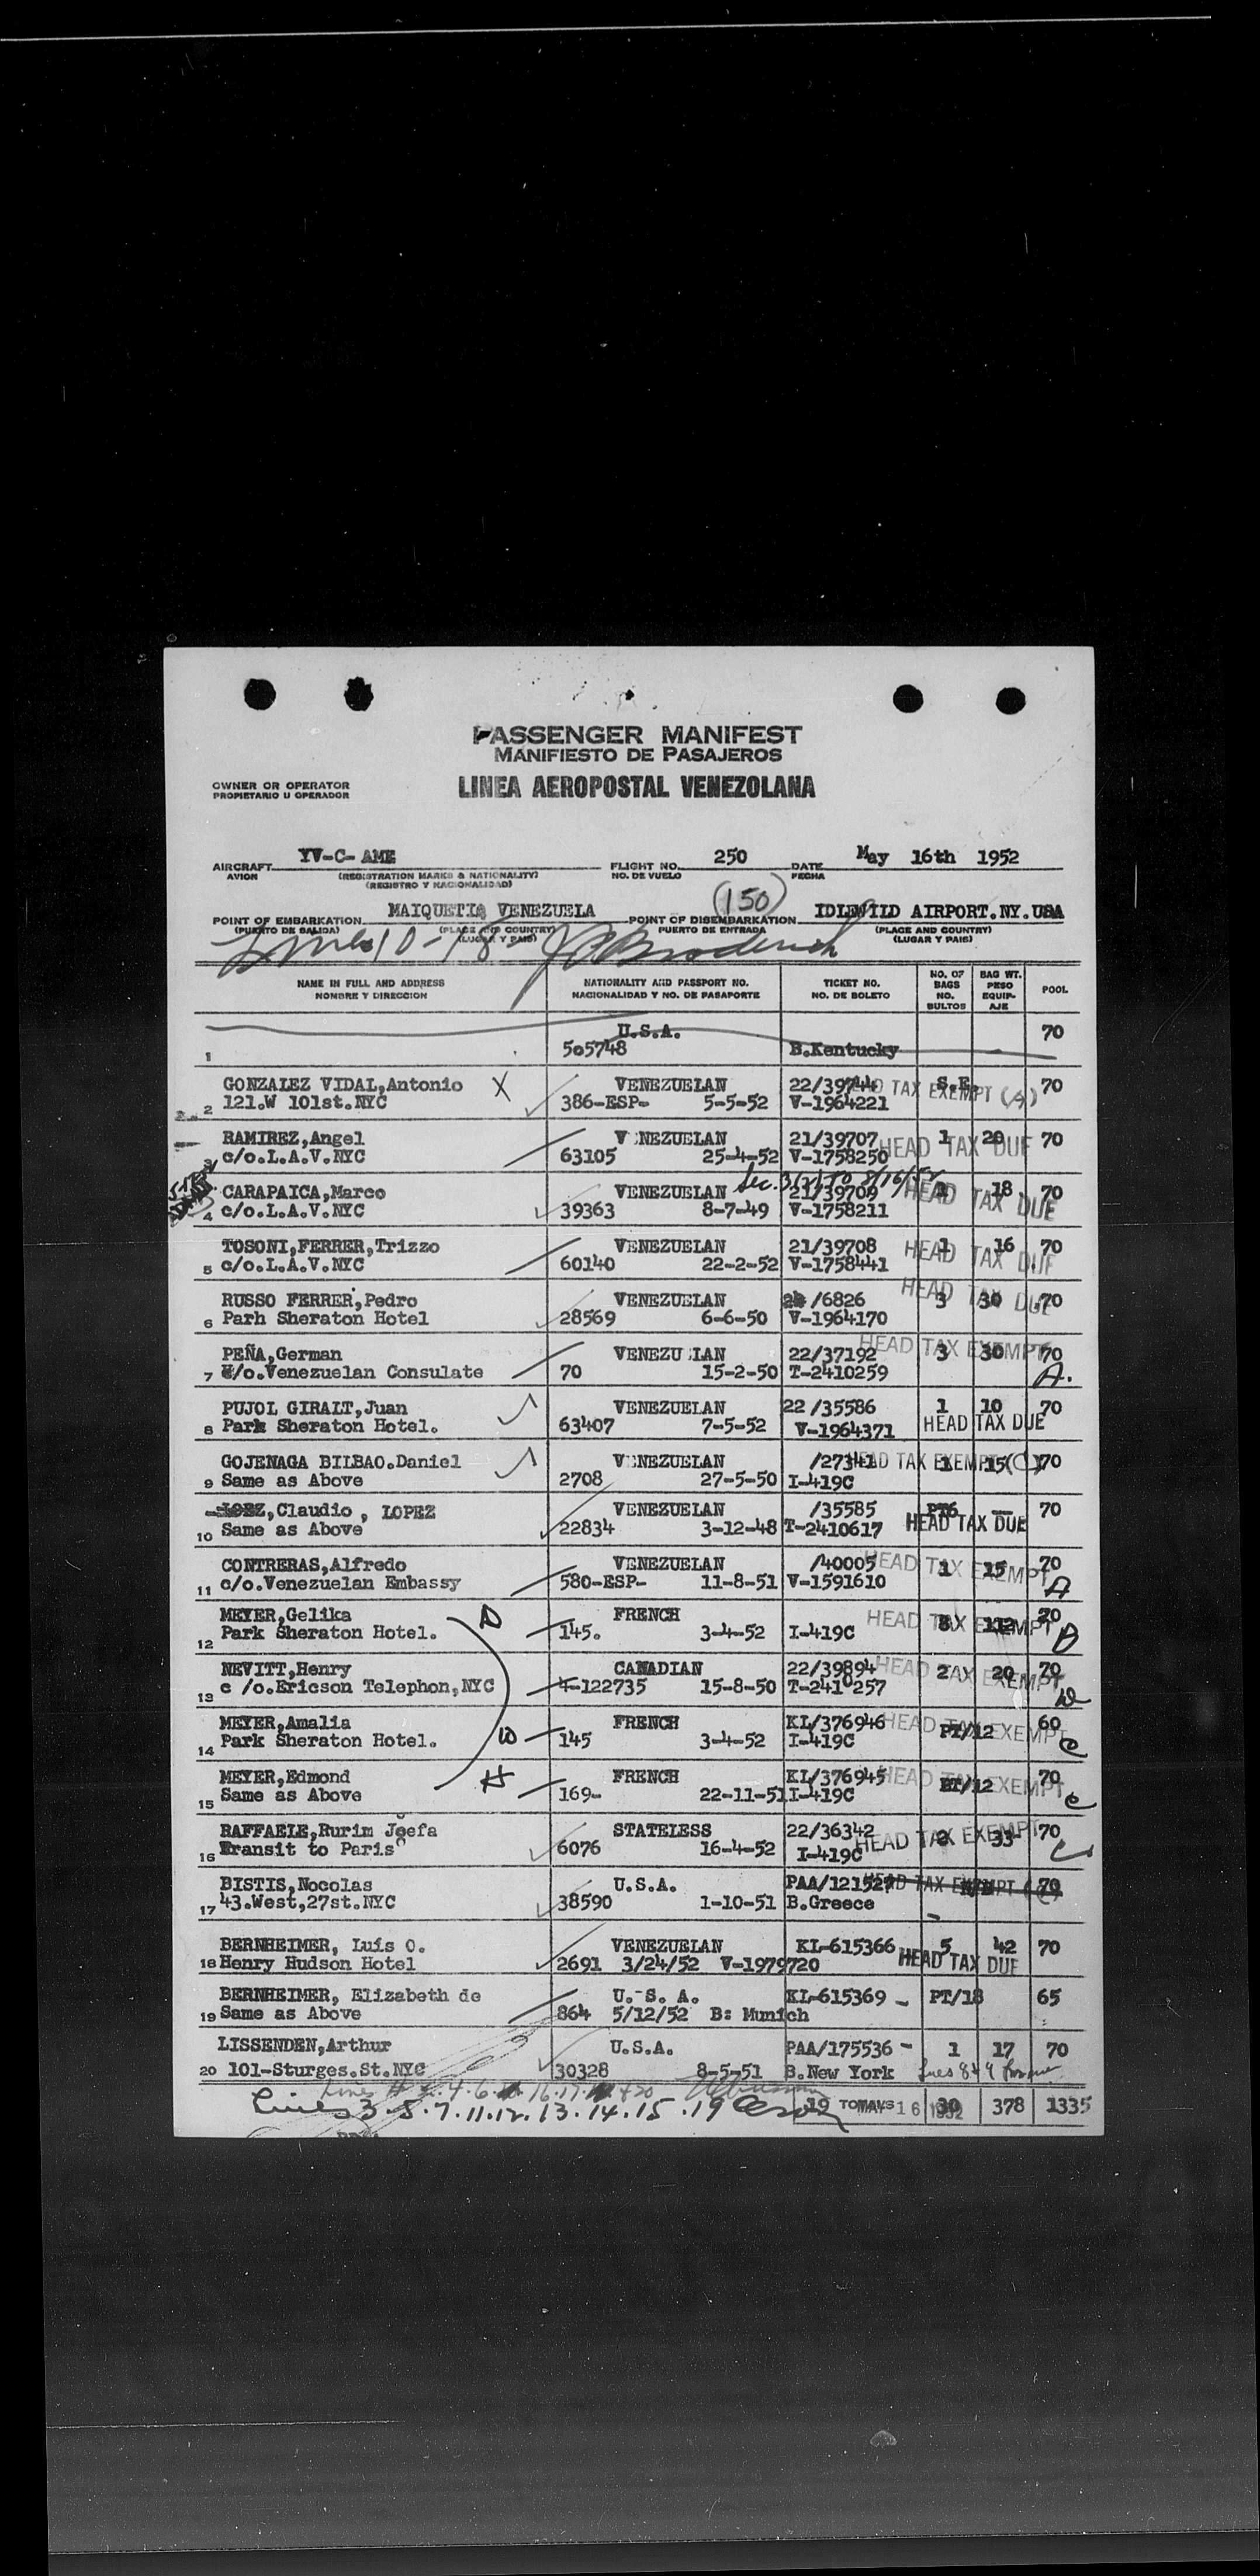 PASSENGER MANIFEST
MANIFIESTO DE PASAJEROS
OWNER OR OPERATOR
PROPIETARIO U OPERADOR
LINEA AEROPOSTAL VENEZOLANA
AIRCRAFT YV-C-AME FLIGHT NO. 250 DATE May 16th 1952
AVION (REGISTRATION MARKS & NATIONALITY) NO. DE VUELO FECHA
(REGISTRO Y NACIONALIDAD)
(150)
POINT OF EMBARKATION MAIQUETIA VENEZUELA POINT OF DISEMBARKATION IDLEWILD AIRPORT.NY.USA
(PUERTO DE SALIDA) (PLACE AND COUNTRY) PUERTO DE ENTRADA (PLACE AND COUNTRY)
(LUGAR Y PAIS) (LUGAR Y PAIS)
Lines 10-18 Broderick
NAME IN FULL AND ADDRESS NATIONALITY AND PASSPORT NO. TICKET NO. NO. OF BAGS BAG WT. POOL
NOMBRE Y DIRECCION NACIONALIDAD Y NO. DE PASAPORTE NO. DE BOLETO NO. BULTOS PESO EQUIPAJE
U.S.A. 70
1 505748 B.Kentucky
GONZALEZ VIDAL,Antonio X VENEZUELAN 22/39744 S.E. HEAD TAX EXEMPT (A) 70
2 121.W 101st.NYC 386-ESP- 5-5-52 V-1964221
RAMIREZ,Angel VENEZUELAN 21/39707 1 20 70
3 c/o.L.A.V.NYC 63105 25-4-52 V-1758250 HEAD TAX DUE
CARAPAICA,Marco VENEZUELAN 21/39709 18 70
4 c/o.L.A.V.NYC 39363 8-7-49 V-1758211 HEAD TAX DUE
TOSONI,FERRER,Trizzo VENEZUELAN 21/39708 1 16 70
5 c/o.L.A.V.NYC 60140 22-2-52 V-1758441 HEAD TAX DUE
RUSSO FERRER,Pedro VENEZUELAN /6826 3 30 70 HEAD TAX DUE
6 Parh Sheraton Hotel 28569 6-6-50 V-1964170
PEÑA,German VENEZUELAN 22/37192 3 30 70 HEAD TAX EXEMPT
7 c/o.Venezuelan Consulate 70 15-2-50 T-2410259 A.
PUJOL GIRALT,Juan VENEZUELAN 22/35586 1 10 70
8 Park Sheraton Hotel. 63407 7-5-52 V-1964371 HEAD TAX DUE
GOJENAGA BILBAO.Daniel VENEZUELAN /27341 1 15 70 HEAD TAX EXEMPT (C)
9 Same as Above 2708 27-5-50 I-419C
LOEZ,Claudio , LOPEZ VENEZUELAN /35585 PT6 — 70
10 Same as Above 22834 3-12-48 T-2410617 HEAD TAX DUE
CONTRERAS,Alfredo VENEZUELAN /40005 1 15 70 HEAD TAX EXEMPT
11 c/o.Venezuelan Embassy 580-ESP- 11-8-51 V-1591610 A
MEYER,Gelika D FRENCH 8 112 20 HEAD TAX EXEMPT
12 Park Sheraton Hotel. 145. 3-4-52 I-419C B
NEVITT,Henry CANADIAN 22/39894 2 20 70 HEAD TAX EXEMPT
13 c /o.Ericson Telephon,NYC 4-122735 15-8-50 T-2410257
MEYER,Amalia FRENCH KL/376946 PT/12 60 HEAD TAX EXEMPT
14 Park Sheraton Hotel. W 145 3-4-52 I-419C C
MEYER,Edmond H FRENCH KL/376945 PT/12 70 HEAD TAX EXEMPT
15 Same as Above 169- 22-11-51 I-419C C
RAFFAELE,Rurim Josefa STATELESS 22/36342 2 33 70 HEAD TAX EXEMPT
16 Transit to Paris 6076 16-4-52 I-419C
BISTIS,Nocolas U.S.A. PAA/121527 70 HEAD TAX EXEMPT
17 43.West,27st.NYC 38590 1-10-51 B.Greece
BERNHEIMER, Luis O. VENEZUELAN KL-615366 5 42 70
18 Henry Hudson Hotel 2691 3/24/52 V-1979720 HEAD TAX DUE
BERNHEIMER, Elizabeth de U.S.A. KL-615369 - PT/18 65
19 Same as Above 864 5/12/52 B: Munich
LISSENDEN,Arthur U.S.A. PAA/175536 - 1 17 70
20 101-Sturges.St.NYC 30328 8-5-51 B.New York
Lines 3.5.7.11.12.13.14.15.19
19 MAY 16 1952 30 378 1335